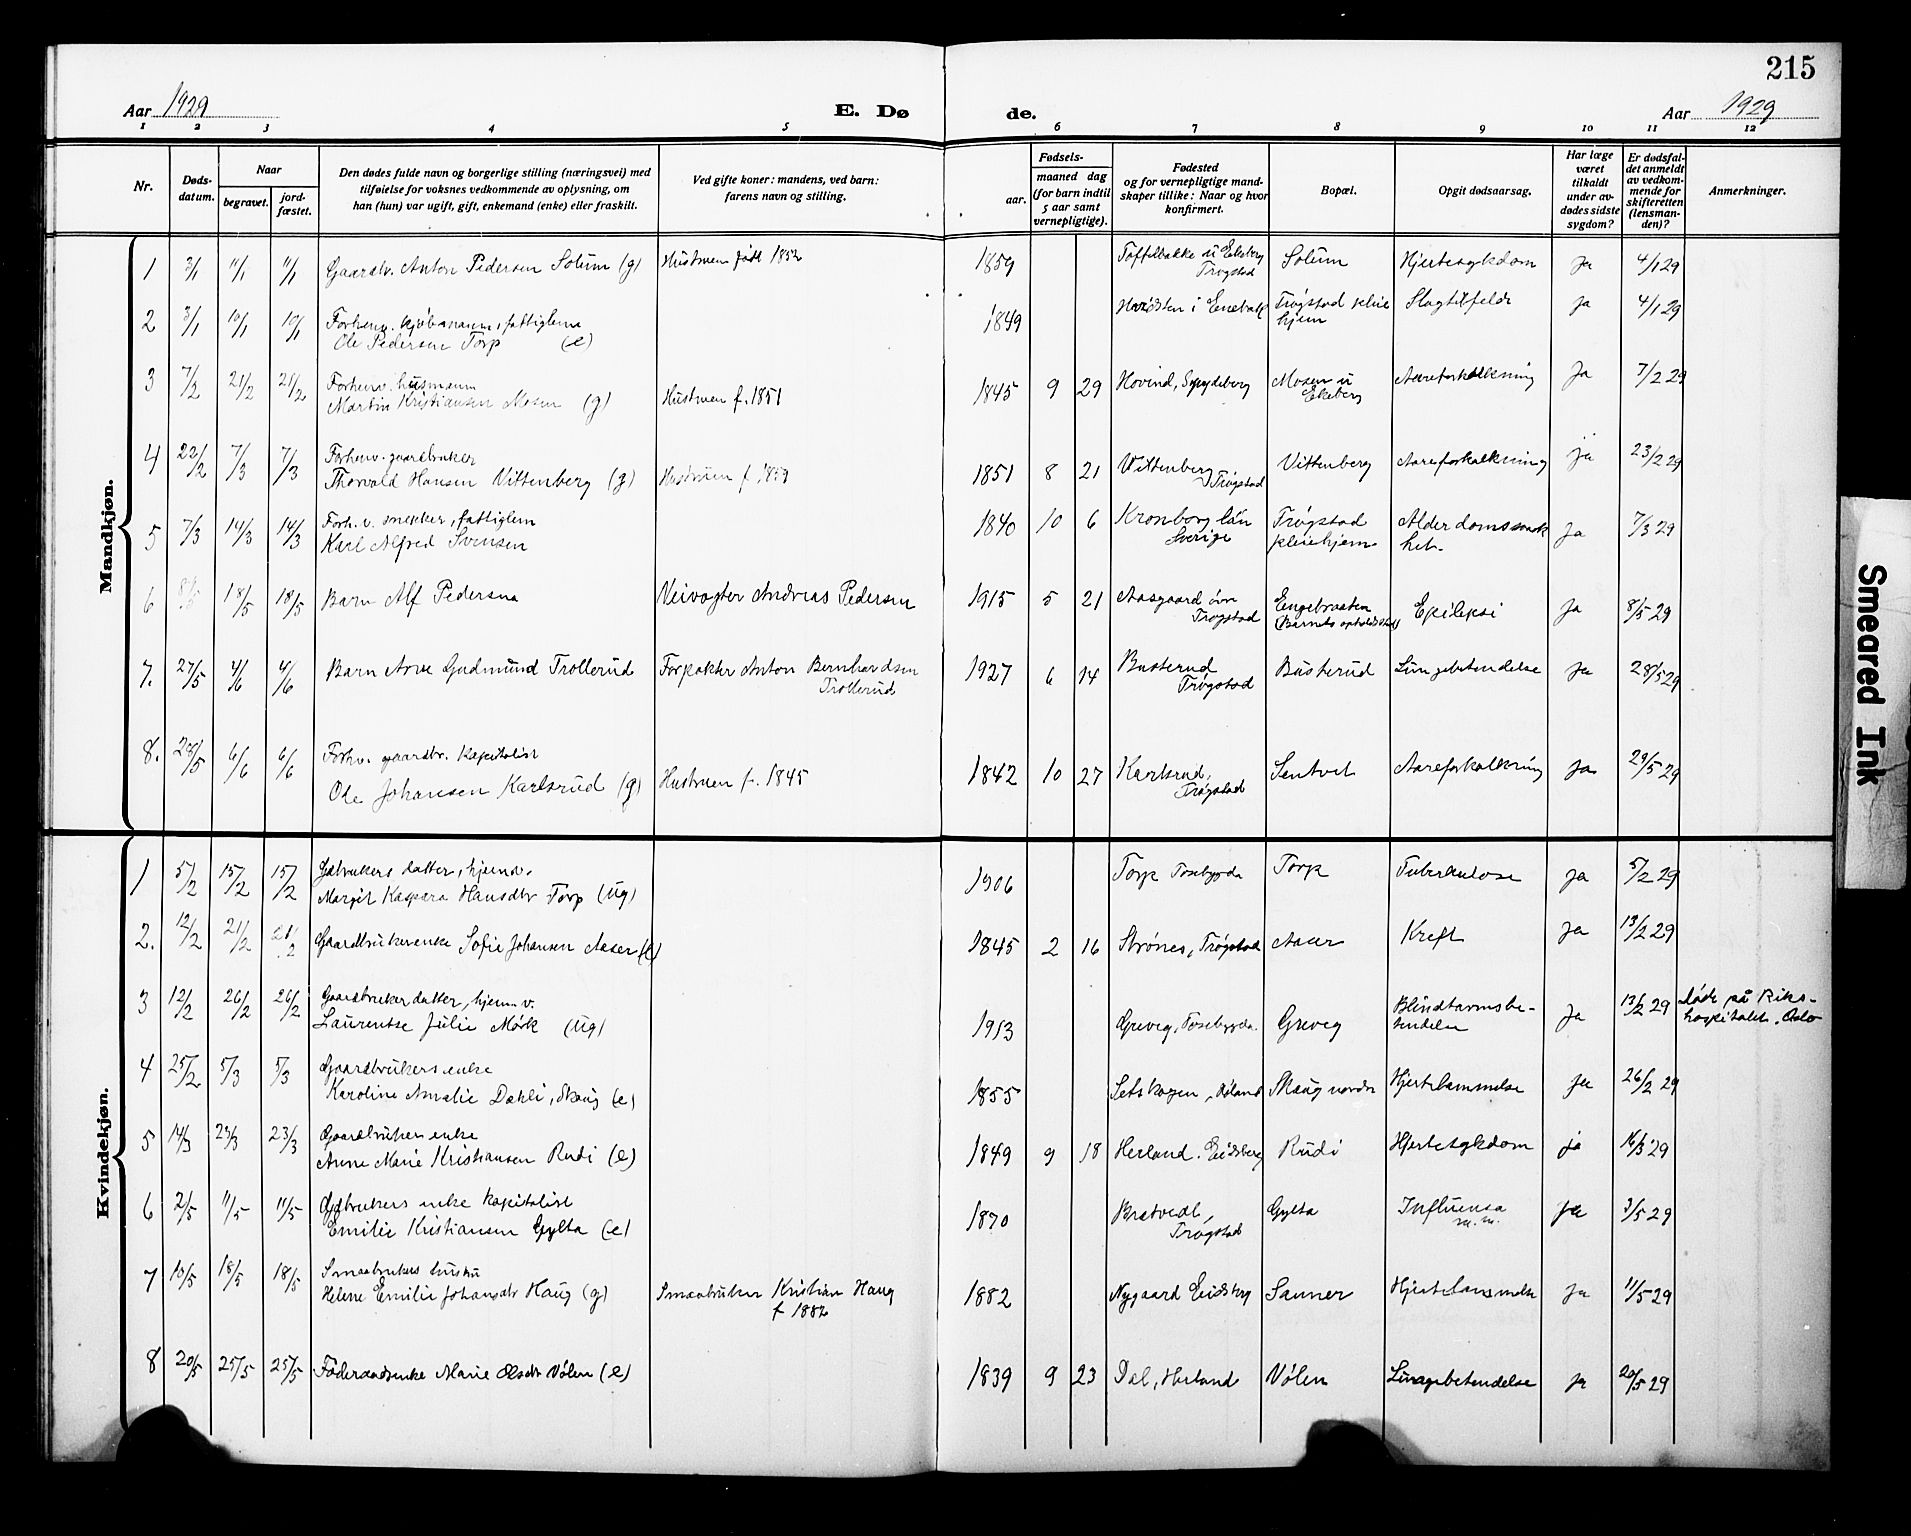 215
Aar 1929 E. Dø de. Aar 1929
1 2 3 4 5 6 7 8 9 10 11 12
Nr.
Døds-
datum.
Naar
begravet.
jord-
fæstet.
Den dødes fulde navn og borgerlige stilling (næringsvei) med
tilføielse for voksnes vedkommende av oplysning, om
han (hun) var ugift, gift, enkemand (enke) eller fraskilt.
Ved gifte koner: mandens, ved barn:
farens navn og stilling.
Fødsels-
aar.
maaned dag
(for barn indtil
5 aar samt
vernepligtige).
Fødested
og for vernepligtige mand-
skaper tillike: Naar og hvor
konfirmert.
Bopæl.
Opgit dødsaarsag.
Har læge
været
tilkaldt
under av-
dødes sidste
sygdom?
Er dødsfal-
det anmeldt
av vedkom-
mende for
skifteretten
(lensman-
den)?
Anmerkninger.
Mandkjøn.
1 3/1 11/1 11/1 Gaardbr. Anton Pedersen Solum (g) Hustruen født 1852 1859 Toffelbakke u Ekeberg
Trøgstad Solum Hjertesykdom Ja 4/1 29
2 3/1 10/1 10/1 Forhenv. kjøbmann, fattiglem
Ole Pedersen Torp (e) 1849 i Enebakk Trøgstad pleie
hjem Slagtilfelde ja 4/1 29
3 7/2 21/2 21/2 Forhenv. husmann
Martin Kristiansen Mosen (g) Hustruen f. 1851 1845 9 29 Hovind, Spydeberg Mosen u
Ekeberg Aareforkalkning Ja 7/2 29
4 22/2 7/3 7/3 Forhenv. gaardbruker
Thorvald Hansen Vittenberg (g) Hustruen f. 1859 1851 8 21 Vittenberg
Trøgstad Vittenberg Aareforkalkning ja 23/2 29
5 7/3 14/3 14/3 Forh. v. snekker, fattiglem
Karl Alfred Svensen 1840 10 6 Kronborg län
Sverige Trøgstad
pleiehjem Alderdomssvak
het. Ja 7/3 29
6 8/5 18/5 18/5 Barn Alf Pedersen Veivogter Andreas Pedersen 1915 5 21 Aasgaard øvre
Trøgstad Engebraaten
(Barnets opholdssted) Epilepsi Ja 8/5 29
7. 27/5 4/6 4/6 Barn Arve Gudmund Trollerud Forpakter Anton Bernhardsen
Trollerud 1927 6 14 Busterud
Trøgstad Busterud Lungebetendelse ja 28/5 29
8. 28/5 6/6 6/6 Forhv. gaardbr. kapitalist
Ole Johansen Karlsrud (g) Hustruen f. 1845 1842 10 27 Karlsrud,
Trøgstad Sentvet Aareforkalkning Ja 29/5 29
Kvindekjøn.
1 5/2 15/2 15/2 Gdbrukers datter, hjemv.
Margit Kaspara Hansdtr Torp (ug) 1906 Torp Tosebygda Torp Tuberkulose ja 5/2 29
2. 12/2 21/2 21/2 Gaardbrukerenke Sofie Johansen Aaser (e) 1845 2 16 Strønes, Trøgstad Aaser Kreft ja 13/2 29
3 12/2 26/2 26/2 Gaardbruker datter, hjem. v.
Laurentse Julie Mørk (ug) 1913 Greveg, Tosebygda. Greveg Blindtarmsbe-
tendelse Ja 13/2 29 døde på Riks-
hospitalet. Oslo
4 25/2 5/3 5/3 Gaardbrukers enke
Karoline Amalie Dahli, Skaug (e) 1855 Setskogen, Høland Skaug nordre Hjertelammelse Ja 26/2 29
5 14/3 23/3 23/3 Gaardbruker enke
Anne Marie Kristiansen Rudi (e) 1849 9 18 Herland. Eidsberg Rudi Hjertesykdom ja 16/3 29
6 2/5 11/5 11/5 Gdbrukers enke kapitalist
Emilie Kristiansen Gylta (e) 1870 Bratvedt,
Trøgstad Gylta Influensa
m.m. Ja 3/5 29
7 10/5 18/5 18/5 Smaabrukers hustru
Helene Emilie Johansdtr Haug (g) Smaabruker Kristian Haug
f 1882 1882 Nygaard Eidsberg Sanner Hjertelammelse Ja 11/5 29
8 20/5 25/5 25/5 Føderaadsenke Marie Olsdtr Vølen (e) 1839 9 23 Dal, Herland Vølen Lungebetendelse ja 20/5 29
Smeared Ink